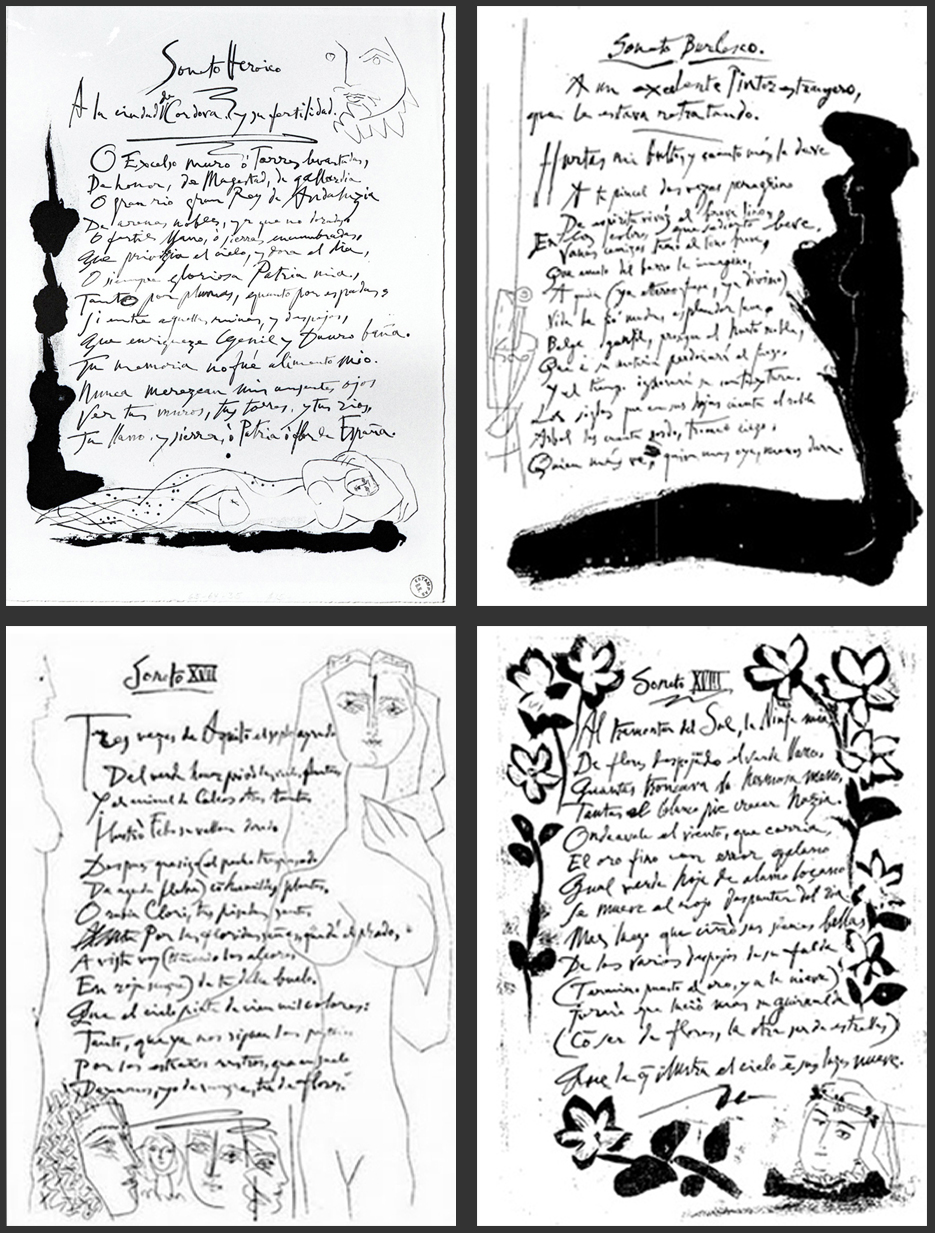 Soneto Heroico
A la ciudad de Cordova. y su fertilidad.
O Excelso muro ô Torres levantadas,
De honor, de Magestad, de gallardia
O gran rio gran Rey de Andaluzia
De arenas nobles, ya que no doradas
O fertil llano, ô sierras encumbradas,
Que privilegia el cielo, y dora el dia,
O siempre gloriosa Patria mia,
Tanto por plumas, quanto por espadas
Si entre aquellas ruinas, y despojos,
Que enriqueze Genil y Dauro baña.
Tu memoria no fué alimento mio.
Nunca merezcan mis ausentes ojos
Ver tus muros, tus torres, y tus rios,
Tu llano y sierra, ô Patria ô flor de España.
Soneto Burlesco.
A un excelente Pintor estrangero,
que le estava retratando.
Hurtas mi bulto, y cuanto más le deve
A tu pincel dos vezes peregrino
De espiritu vivaz el breve lino
En los colores que sediento beve,
Vanas cenizas temo al lino breve,
Que emulo del barro le imagino,
A quien (ya etereo fuesse, ya divino)
Vida le fió muda esplendor leve
Belga gentil, prosigue al hurto noble,
Que à su materia perdonará el fuego,
y el tiempo ignorará su contextura.
Los siglos que en sus hojas cuenta el roble
Arbol los cuenta sordo, tronco ciego,
Quien más ve, quien mas oye, menos dura.
Soneto XVII
Tres vezes de Aquilón el soplo ayrado
Del verde honor privó las verdes plantas
Y al animal de Colcos otras tantas
Ilustró Febo su vellon dorado
Despues que sigo (el pecho traspassado
De aguda flecha) con humildes plantas,
O rubia Clori, tus pisadas santas,
Por las floridas señas que dá el prado,
A vista voy (tiñendo los alcores
En roja sangre) de tu dulce buelo.
Que el cielo pinta de cien mil colores:
Tanto, que ya nos siguen los pastores
Por los estraños rastros, que en suelo
Dexamos, yo de sangre, tu de flores.
Soneto XVIII
Al tramontar del Sol, la Ninfa mia
De flores despojando el verde llano,
Quantas troncava la hermosa mano,
Tantas el blanco pie crecer hazia.
Ondeavale el viento, que corria,
El oro fino con error galano
Qual verde hoja de alamo loçano
Se mueve al rojo despuntar del dia
Mas luego que ciñó sus sienes bellas
De los varios despojos de su falda
(Termino puesto al oro, y a la nieve)
Juraré que lució mas su guirnalda
(Cõ ser de flores, la otra ser de estrellas)
Que la q̃ ilustra el cielo ẽ sus luzes nueve.